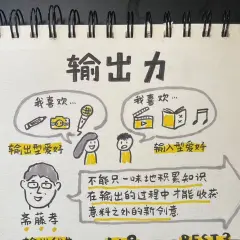 输出力
我喜欢… 我喜欢…
输出型爱好 输入型爱好
不能只一味地积累知识
在输出的过程中才能收获
意料之外的新创意
斋藤孝